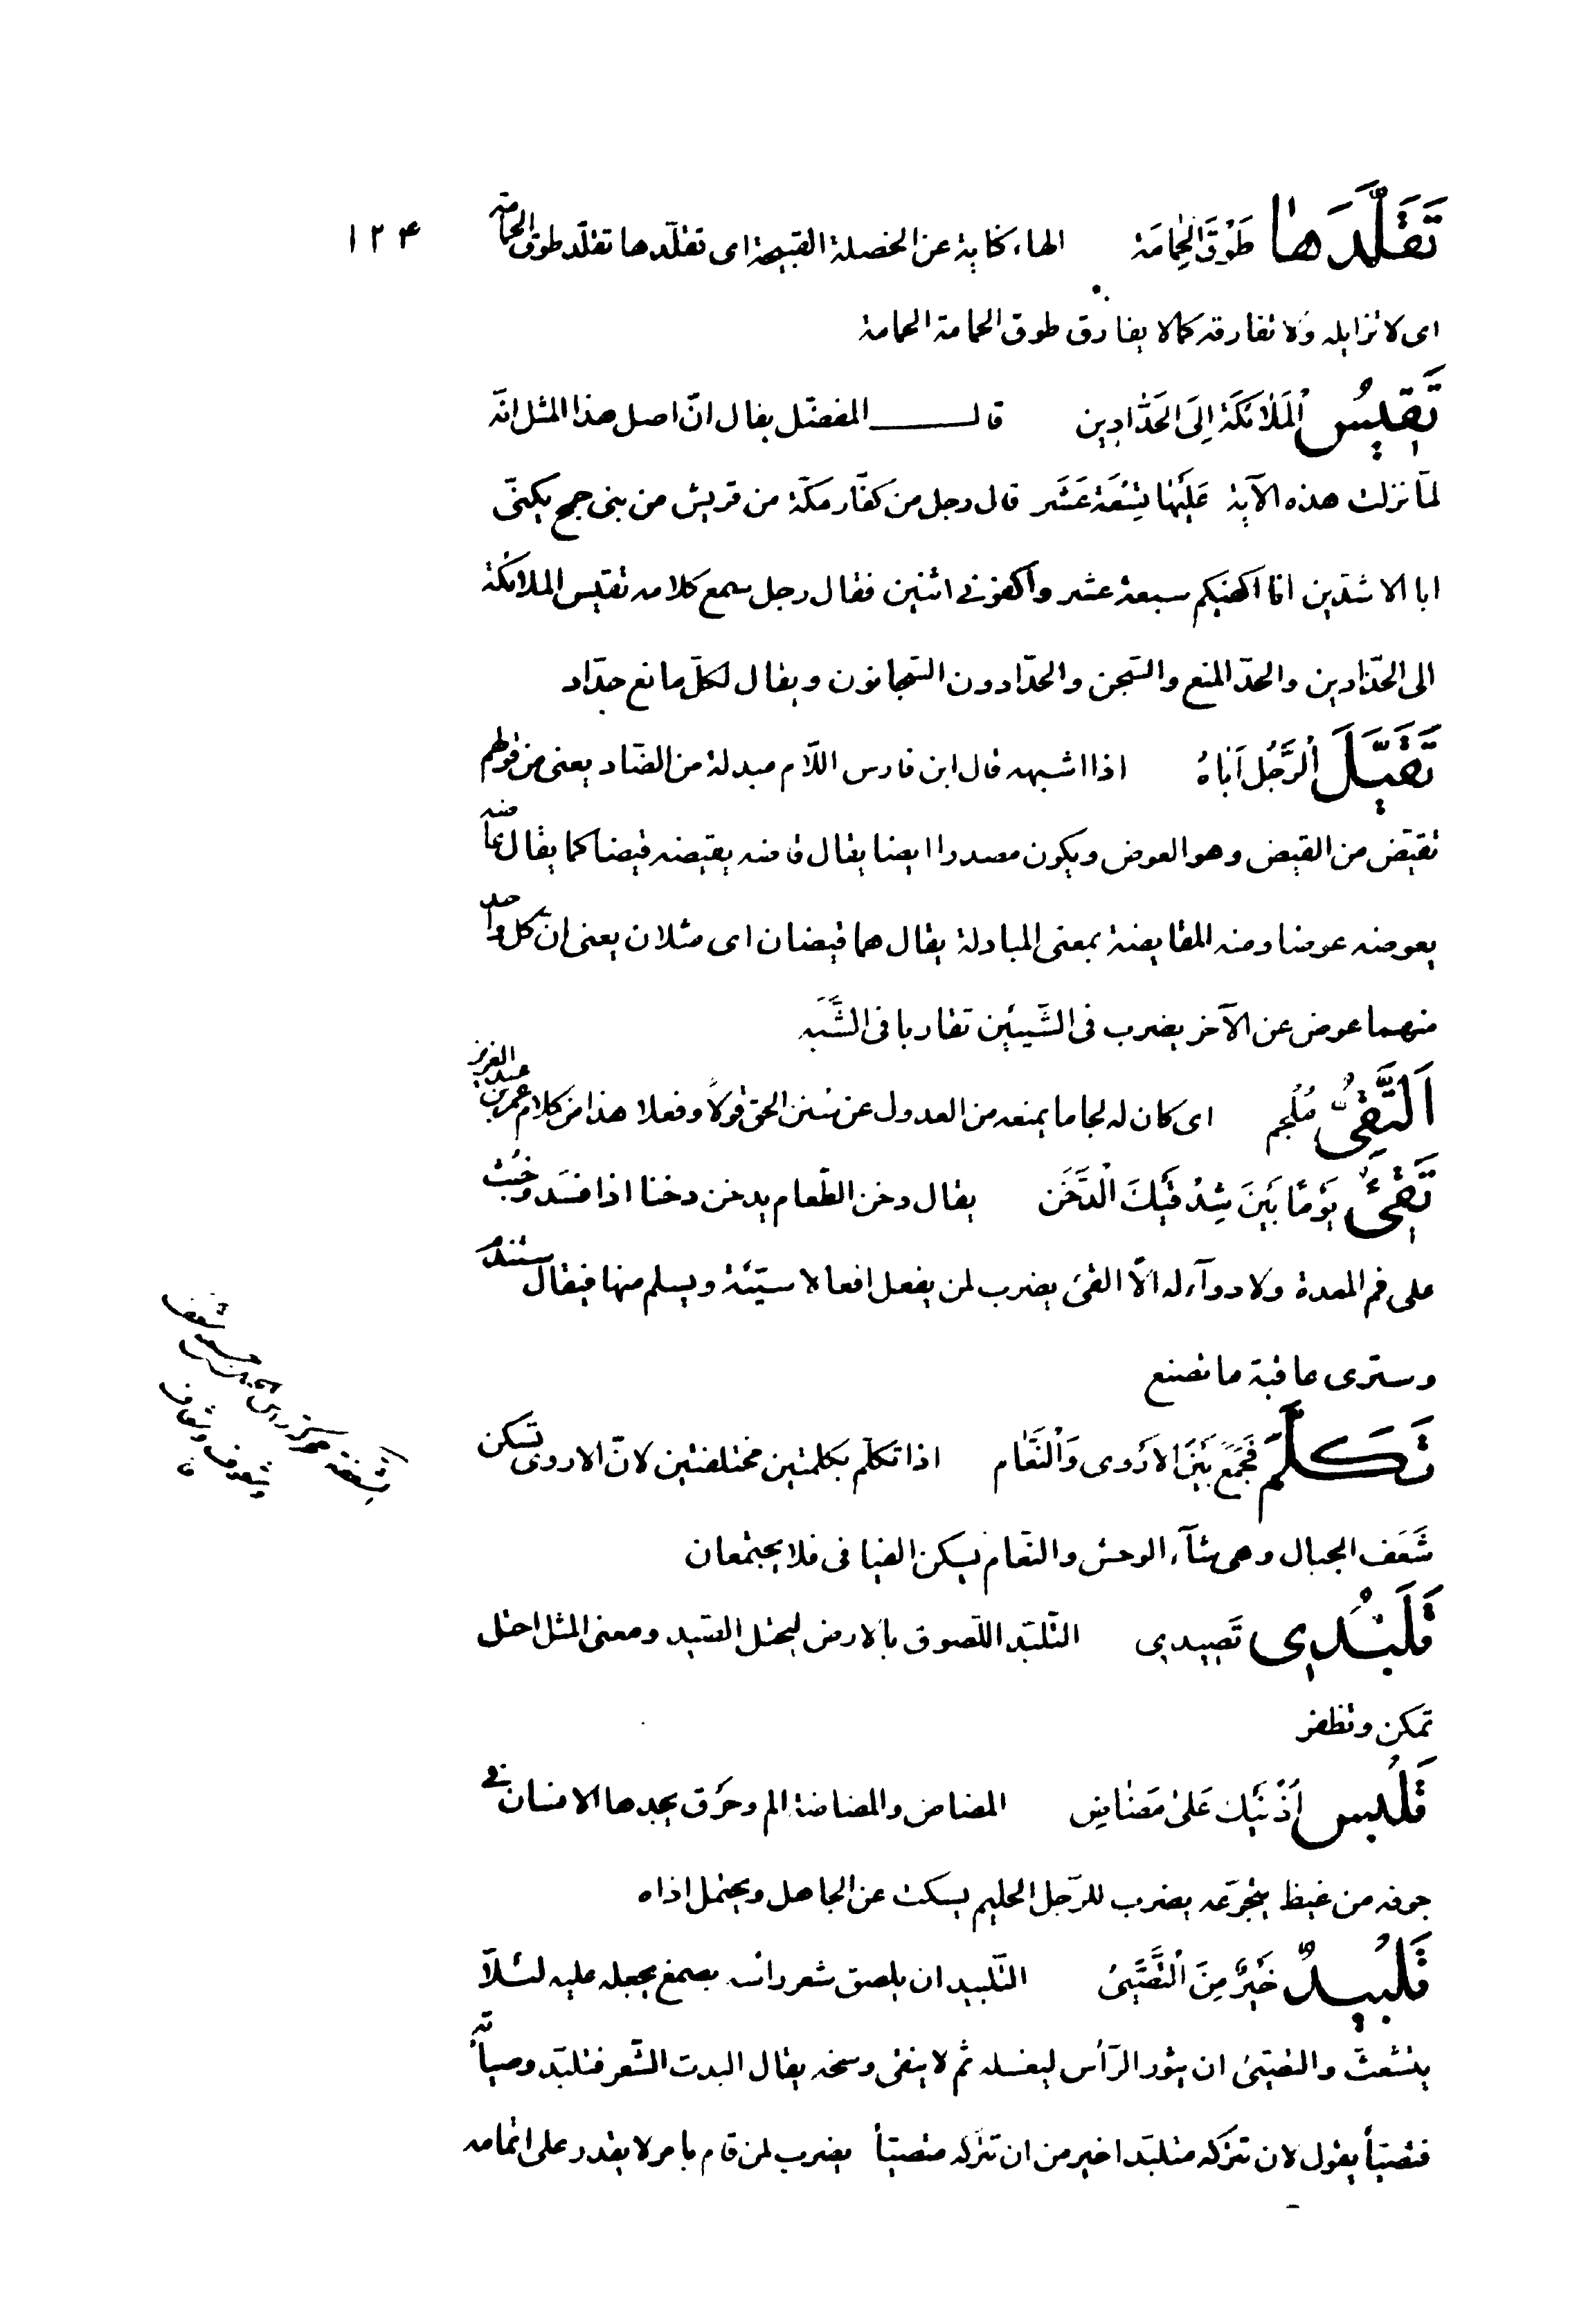 تَقَلَّدَهَا طَوْقَ الْحَمَامَة الهاء كناية عن الخصلة القبيحة اى تقلّدها تقلّد طوق الحمامة ۱۲۴
اى لا تزايله ولا تفارقه كما لا يفارق طوق الحمامة الحمامة
تَقِيسُ الْمَلَائكَةَ اِلَى الْحَدَّادِين قال المفضّل يقال انّ اصل هذا المثل انّه
لمّا نزلت هذه الآية عَلَيْهَا تِسْعَةَ عَشَر قال رجل من كفّار مكّة من قريش من بنى جمح يكنّى
ابا الاشدّين انا اكفيكم سبعة عشر واكفونى اثنين فقال رجل سمع كلامه تقيس الملائكة
الى الحدّادين والحدّ المنع والسّجن والحدّادون السّجانون ويقال لكلّ مانع حدّاد
تَقَيَّلَ الرَّجُلُ اَبَاهُ اذا اشبهه قال ابن فارس اللّام مبدلة من الضّاد يعنى من قولهم
تقيّض من القيض وهو العوض ويكون مصدرا ايضا يقال قاضه يقيضه قيضا كما يقال عاضه
يعوضه عوضا ومنه المقايضة بمعنى المبادلة يقال هما قيضان اى مثلان يعنى انّ كل واحد
منهما عوض عن الآخر يضرب فى الشّيئين تقاربا فى الشَّبَه
اَلتَّقِىُّ مُلْجَم اى كان له لجاما يمنعه من العدول عن سنن الحق قولاً وفعلا هذا من كلام عمر بن عبد العزيز
تَقِئُ يَوْمًا بَيْنَ شِدْقَيْكَ الدَّخَن يقال دخن الطّعام يدخن دخنا اذا فسَد وخبُث
على فم المعدة ولا دوآء له الّا القئ يضرب لمن يفعل افعالا سيّئة ويسلم منها فيقال ستندم
وسترى عاقبة ما تصنع
تَكَلَّمَ فَجَمَعَ بَيْنَ الْاَرْوى وَالنَّعَام اذا تكلّم بكلمتين مختلفتين لانّ الاروى تسكن
شَعَف الجبال وهى شآء الوحش والنّعام يسكن الفيافى فلا يجتمعان
تَلَبَّدِى تَصِيدِى التّلبّد اللّصوق بالارض ليختل الصّيد ومعنى المثل احتل
تمكن وتظفر
تَلْبَس اُذْنَيْكَ عَلَىٰ مَضَاضِ المضاض والمضاضة الم وحرَق يجدها الانسان فى
جوفه من غيظ يتجرّعه يضرب للرّجل الحليم يسكت عن الجاهل ويحتمل اذاه
تَلْبِيدٌ خَيْرٌ مِنَ التَّصَيُّئ التّلبيد ان يلصق شعر رأسه بصمغ يجعله عليه لئلاّ
يتشعّث والتصيّئ ان يثور الرّأس ليغسله ثم لا ينقى وسخه يقال البدت الشّعر فتلبّد وصيأته
فتصيّأ يقول لان تتركه متلبّدا خير من ان تتركه متصيّأ يضرب لمن قام بامر لا يقدر على اتمامه